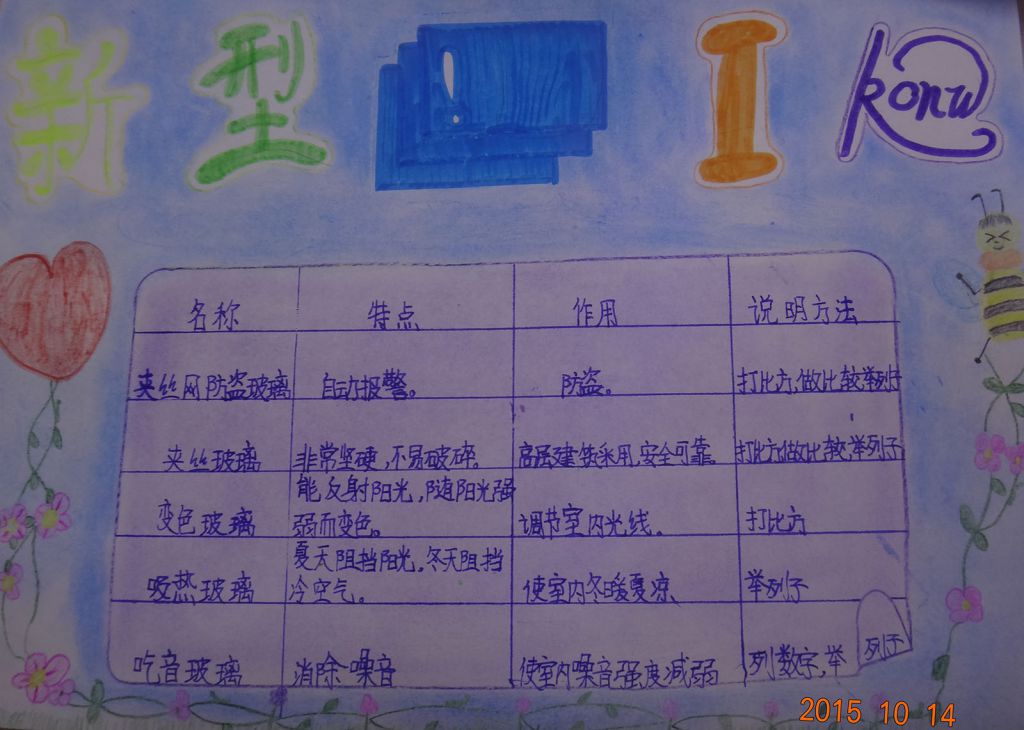 新型 I konw
名称 特点 作用 说明方法
夹丝网防盗玻璃 自动报警。 防盗。 打比方,做比较,举列子
夹丝玻璃 非常坚硬,不易破碎。 高层建筑采用,安全可靠。 打比方,做比较,举列子
变色玻璃 能反射阳光,随阳光强
弱而变色。 调节室内光线。 打比方
吸热玻璃 夏天阻挡阳光。冬天阻挡
冷空气。 使室内冬暖夏凉 举列子
吃音玻璃 消除噪音 使室内噪音强度减弱 列数字,举
列子
2015 10 14